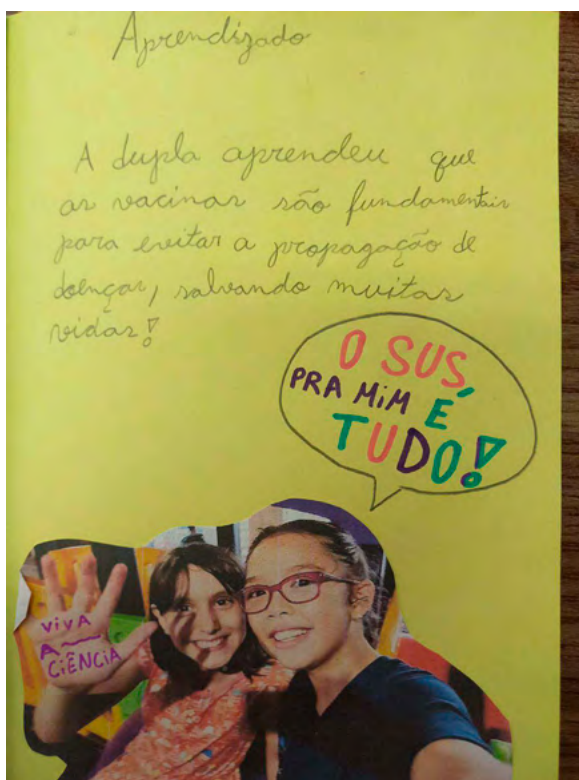 Aprendizado
A dupla aprendeu que
as vacinas são fundamentais
para evitar a propagação de
doenças, salvando muitas
vidas!
O SUS,
PRA MiM É
TUDO!
ViVA
A
CIÊNCiA